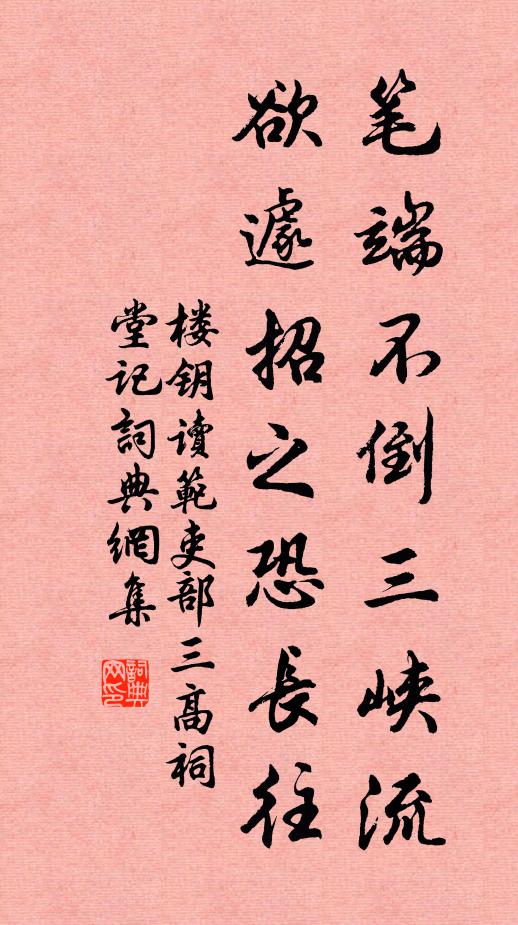 笔端不倒三峡流
欲遽招之恐長往
楼钥读範吏部三高祠
堂记詞典網集
詞典网印